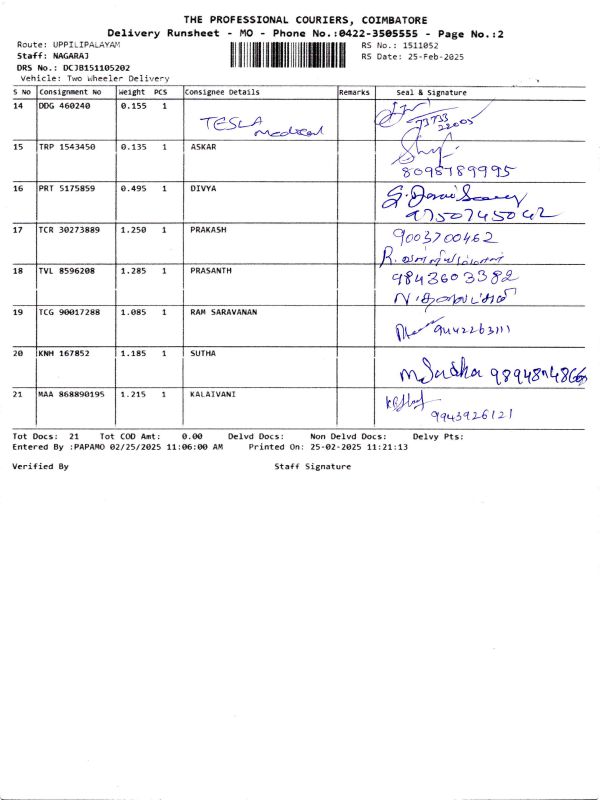 THE PROFESSIONAL COURIERS, COIMBATORE
Delivery Runsheet - MO - Phone No.:0422-3505555 - Page No.:2
Route: UPPILIPALAYAM RS No.: 1511052
Staff: NAGARAJ RS Date: 25-Feb-2025
DRS No.: DCJB151105202
Vehicle: Two Wheeler Delivery
S No Consignment No Weight PCS Consignee Details Remarks Seal & Signature
14 DDG 460240 0.155 1 TESLA Medical 73733 22005
15 TRP 1543450 0.135 1 ASKAR
8098789995
16 PRT 5175859 0.495 1 DIVYA
9750745042
17 TCR 30273889 1.250 1 PRAKASH 9003700462
R.
18 TVL 8596208 1.285 1 PRASANTH 9843603382
19 TCG 90017288 1.085 1 RAM SARAVANAN
9442263111
20 KNH 167852 1.185 1 SUTHA
M. Sudha
21 MAA 868890195 1.215 1 KALAIVANI
9943926121
Tot Docs: 21 Tot COD Amt: 0.00 Delvd Docs: Non Delvd Docs: Delvy Pts:
Entered By :PAPAMO 02/25/2025 11:06:00 AM Printed On: 25-02-2025 11:21:13
Verified By Staff Signature